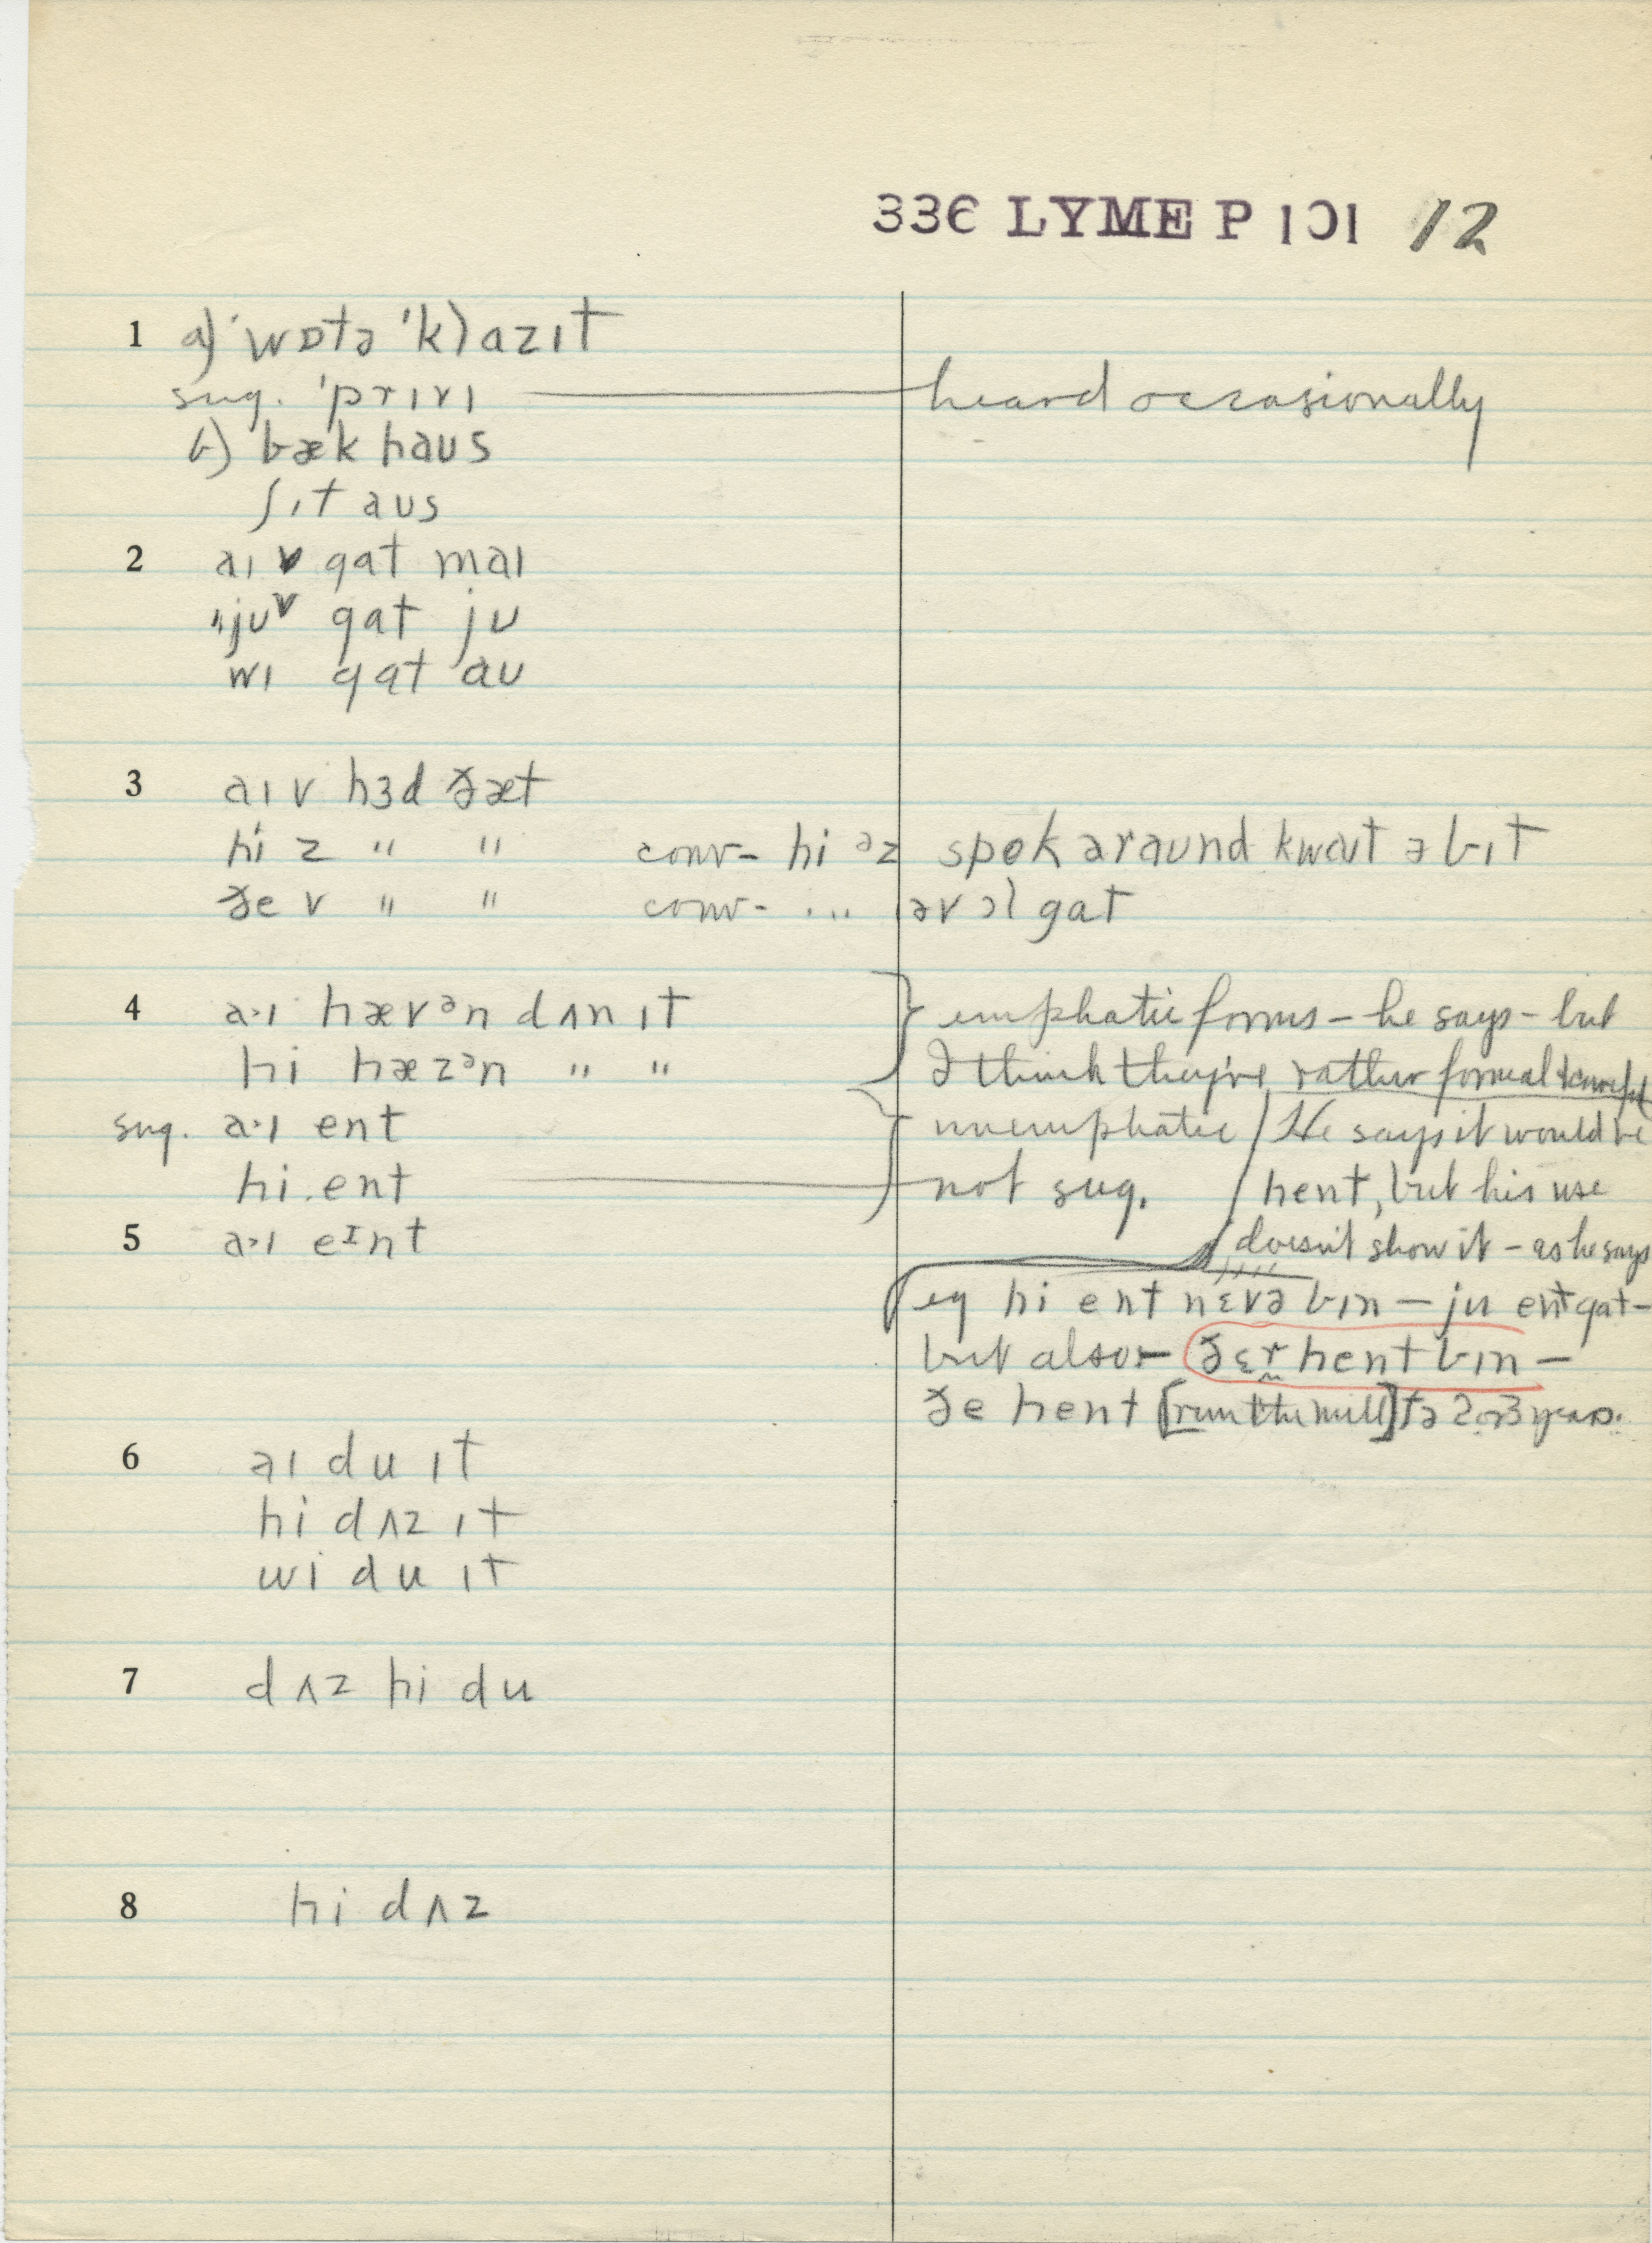 336 LYME P 101 12
1 a) ˈwɒtə ˈklazɪt
sug. ˈprɪvɪ — heard occasionally
b) bæk haus
ʃɪt aus
2 aɪ v gat maɪ
"juv gat ju
wɪ gat au
3 aɪ v hɜd ðæt
hi z " " conv- hi ᵊz spok əraund kwaɪt ə bɪt
ðe v " " conv- ... əv ɔl gat
4 a·ɪ hævᵊn dʌn ɪt } emphatic forms – he says – but
hi hæzᵊn " " I think they're rather formal & careful
sug. a·ɪ ent unemphatic / He says it would be
hi ent — not sug. / hent, but his use
5 a·ɪ eᶦnt doesn't show it – as he says
eg hi ent nɛvə bɪn – ju ent gat –
but also – ðɛr hent bɪn –
ðe hent [run the mill] fə 2 or 3 years.
6 aɪ du ɪt
hi dʌz ɪt
wi du ɪt
7 dʌz hi du
8 hi dʌz